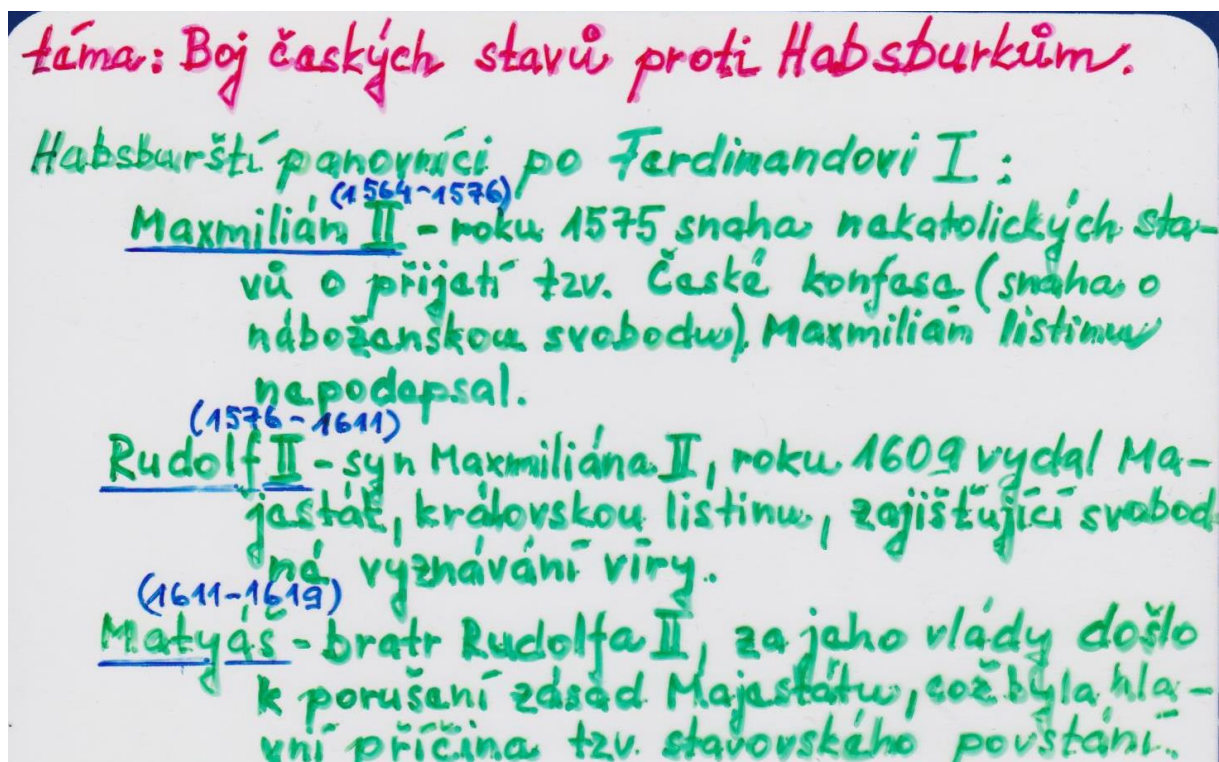 téma: Boj českých stavů proti Habsburkům.
Habsburští panovníci po Ferdinandovi I:
(1564-1576)
Maxmilián II - roku 1575 snaha nekatolických sta-
vů o přijetí tzv. České konfese (snaha o
náboženskou svobodu). Maxmilián listinu
nepodepsal.
(1576-1611)
Rudolf II - syn Maxmiliána II, roku 1609 vydal Ma-
jestát, královskou listinu, zajišťující svobod
né vyznávání víry.
(1611-1619)
Matyáš - bratr Rudolfa II, za jeho vlády došlo
k porušení zásad Majestátu, což byla hla-
vní příčina tzv. stavovského povstání.